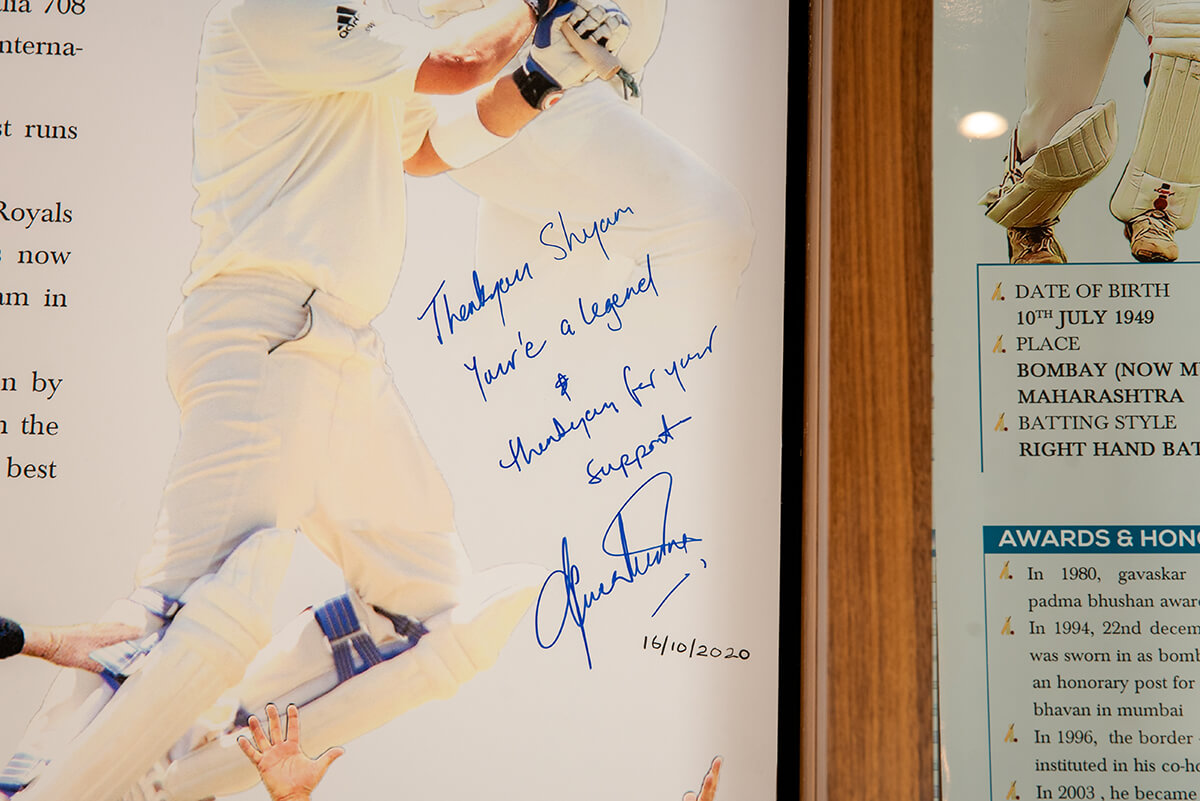 708
interna-
st runs
Royals
now
am in
n by
n the
best
adidas
Thankyou Shyam
You'e a legend
&
thankyou for your
support
16/10/2020
DATE OF BIRTH
10TH JULY 1949
PLACE
BOMBAY (NOW M
MAHARASHTRA
BATTING STYLE
RIGHT HAND BAT
AWARDS & HONO
In 1980, gavaskar
padma bhushan awar
In 1994, 22nd decem
was sworn in as bomb
an honorary post for
bhavan in mumbai
In 1996, the border
instituted in his co-ho
In 2003 , he became